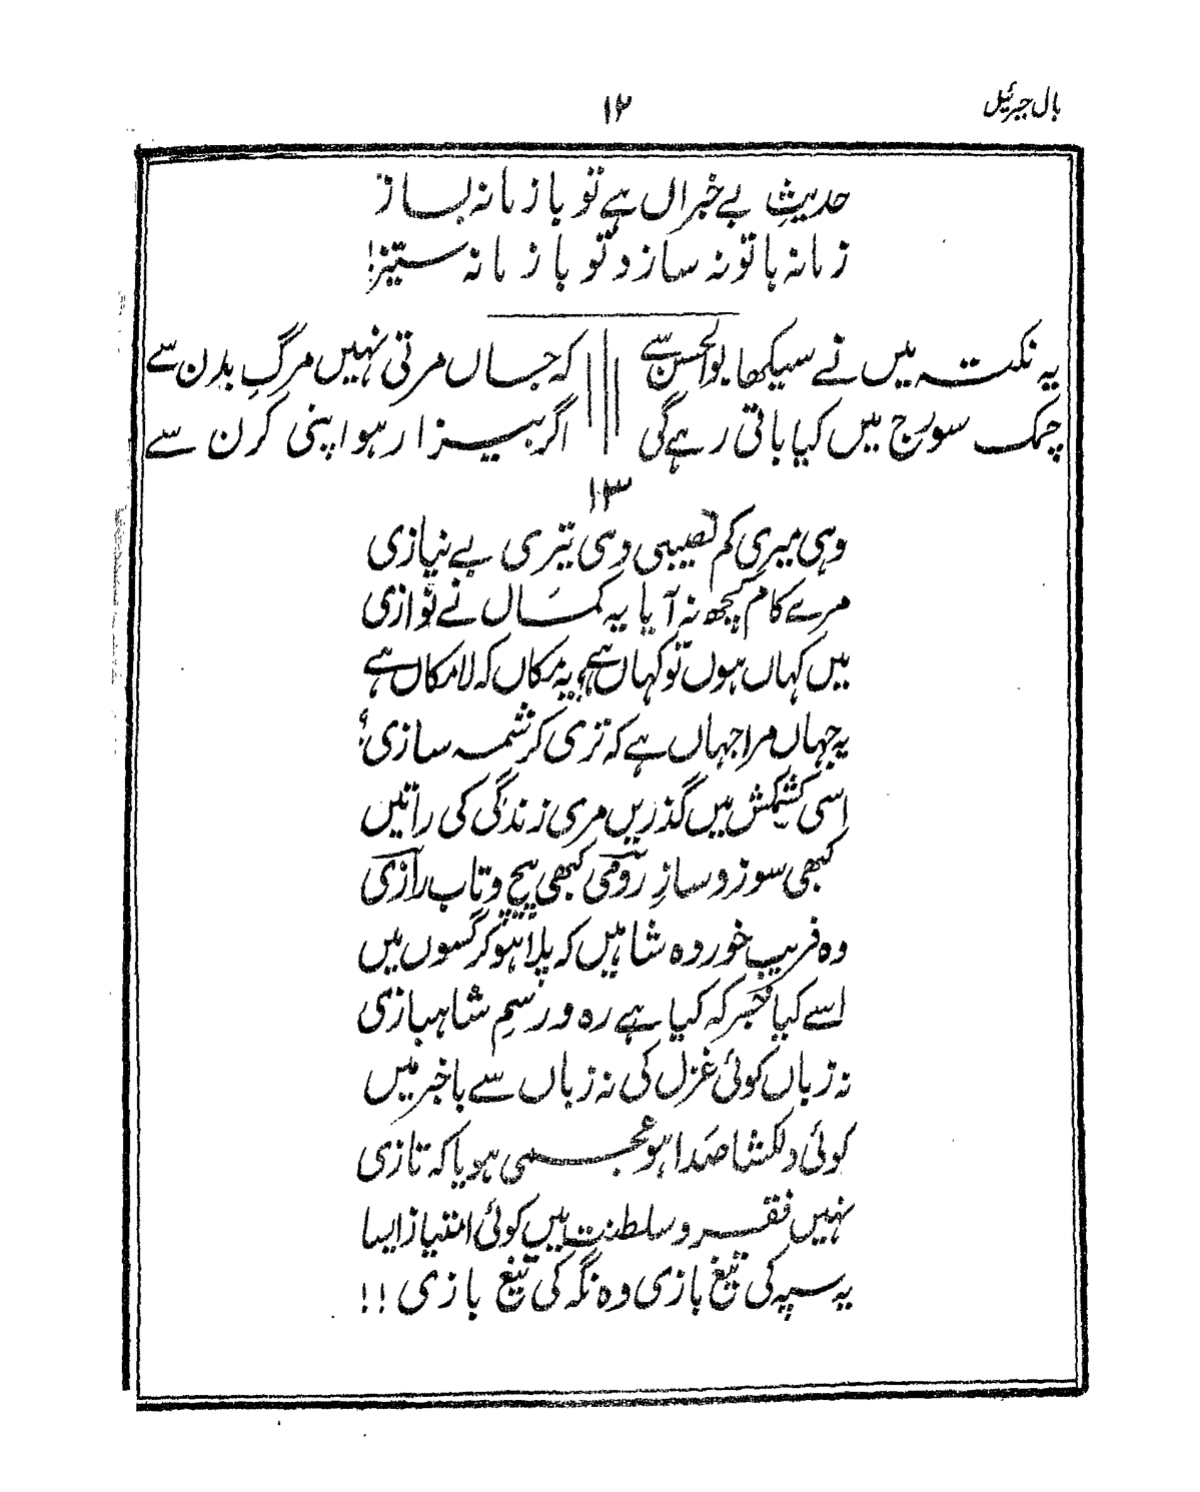 بال جبرئیل
۱۲
حدیثِ بے خبراں ہے تو با زمانہ بساز
زمانہ با تو نہ سازد تو با زمانہ ستیز!
یہ نکتہ میں نے سیکھا بوالحسن سے کہ جاں مرتی نہیں مرگِ بدن سے
چمک سورج میں کیا باقی رہے گی اگر بیزار ہو اپنی کرن سے
۱۳
وہی میری کم نصیبی وہی تیری بے نیازی
مرے کام کچھ نہ آیا یہ کمال نے نوازی
میں کہاں ہوں تو کہاں ہے، یہ مکاں کہ لامکاں ہے
یہ جہاں مرا جہاں ہے کہ تری کرشمہ سازی؟
اسی کشمکش میں گذریں مری زندگی کی راتیں
کبھی سوز و سازِ رومی کبھی پیچ و تاب رازی
وہ فریب خوردہ شاہیں کہ پلا ہو کرگسوں میں
اسے کیا خبر کہ کیا ہے رہ و رسمِ شاہبازی
نہ زباں کوئی غزل کی نہ زباں سے باخبر میں
کوئی دلکشا صدا ہو عجمی ہو یا کہ تازی
نہیں فقر و سلطنت میں کوئی امتیاز ایسا
یہ سپہ کی تیغ بازی وہ نگہ کی تیغ بازی !!